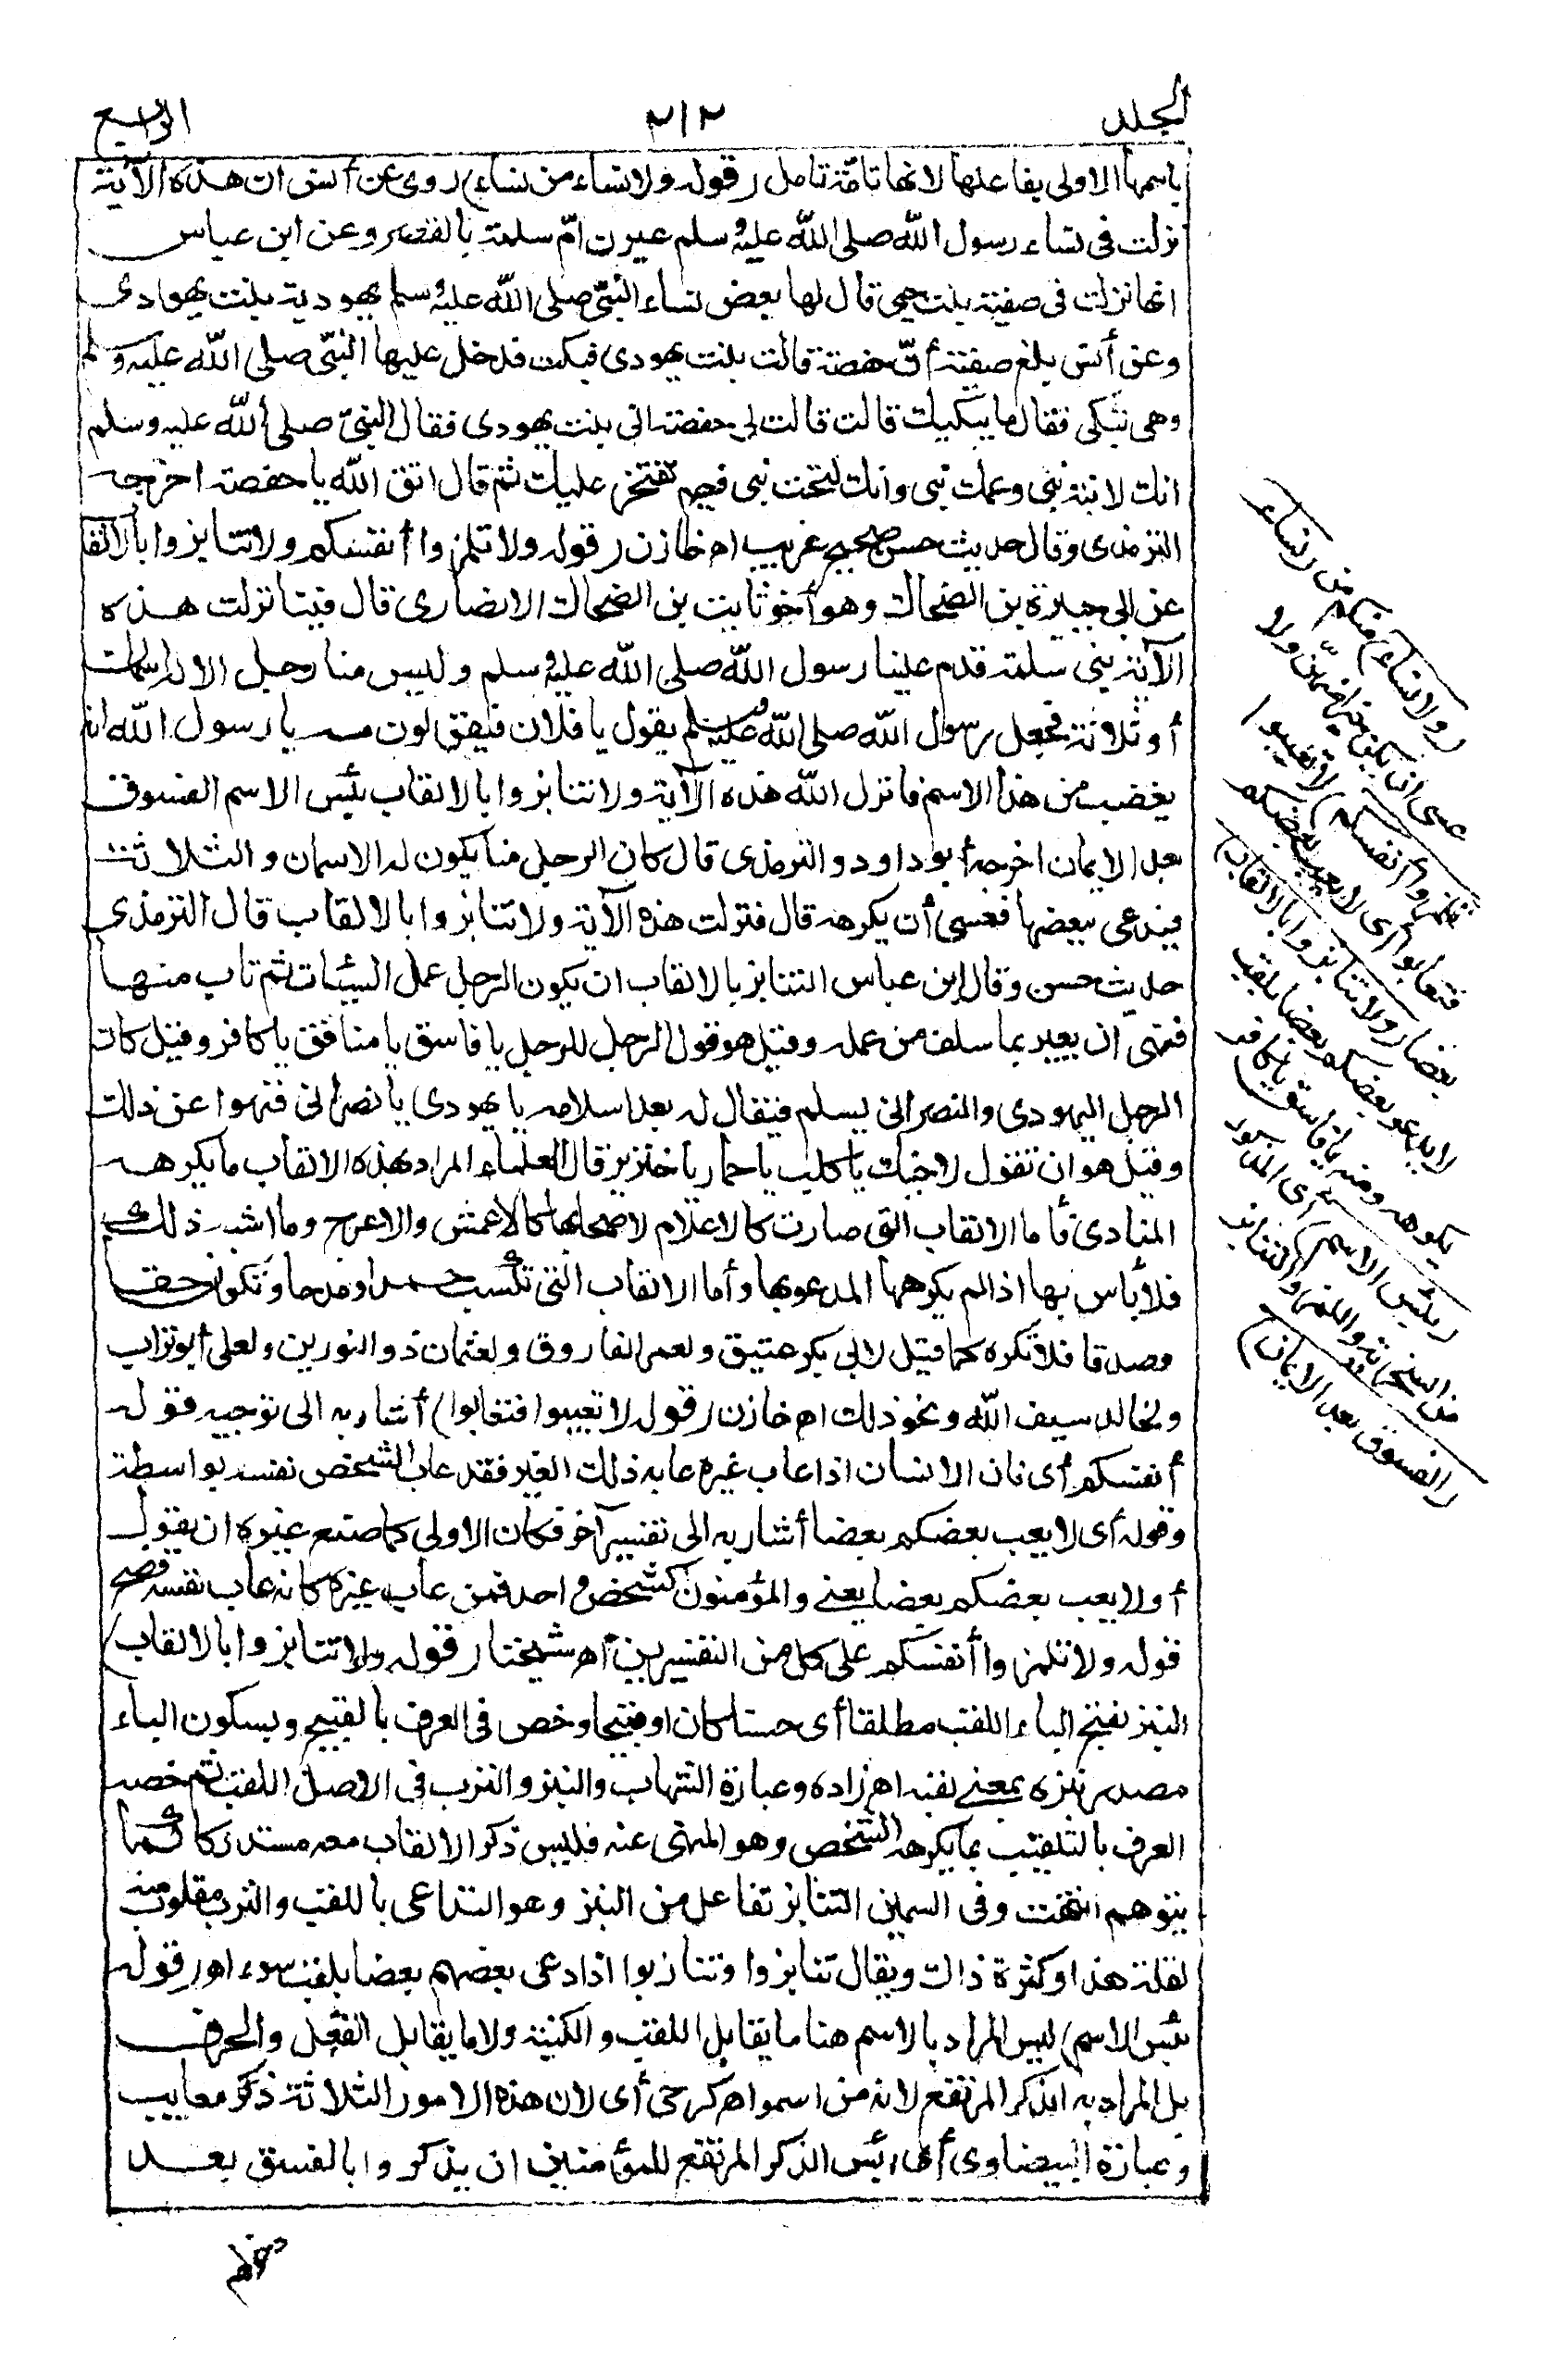 المجلد
٢١٢
الرابع
باسمها الاولى بفاعلها لانها تامّة تامل (قوله ولا نساء من نساء) روى عن أنس ان هذه الآية
نزلت فى نساء رسول الله صلى الله عليه وسلم عيرن امّ سلمة بالقصر وعن ابن عباس
انها نزلت فى صفية بنت حيى قال لها بعض نساء النبىّ صلى الله عليه وسلم يهودية بنت يهودى
وعن أنس بلغ صفية أنّ حفصة قالت بنت يهودى فبكت فدخل عليها النبىّ صلى الله عليه وسلم
وهى تبكى فقال ما يبكيك قالت قالت لى حفصة انى بنت يهودى فقال النبىّ صلى الله عليه وسلم
انك لابنة نبى وعمك نبى وانك لتحت نبى ففيم تفتخر عليك ثم قال اتق الله يا حفصة اخرجه
الترمذى وقال حديث حسن صحيح غريب اه خازن (قوله ولا تلمزوا أنفسكم ولا تنابزوا بالالقا
عن ابى جبيرة بن الضحاك وهو أخو ثابت بن الضحاك الانصارى قال فينا نزلت هذه
الآية بنى سلمة قدم علينا رسول الله صلى الله عليه وسلم وليس منا رجل الا له اسمان
أو ثلاثة فجعل رسول الله صلى الله عليه وسلم يقول يا فلان فيقولون مه يا رسول الله انه
يغضب من هذا الاسم فانزل الله هذه الآية ولا تنابزوا بالالقاب بئس الاسم الفسوق
بعد الايمان اخرجه أبو داود والترمذى قال كان الرجل منا يكون له الاسمان والثلاثة
فيدعى ببعضها فعسى أن يكره قال فنزلت هذه الآية ولا تنابزوا بالالقاب قال الترمذى
حديث حسن وقال ابن عباس التنابز بالالقاب ان يكون الرجل عمل السيئات ثم تاب منها
فنهى ان يعير بما سلف من عمله وقيل هو قول الرجل للرجل يا فاسق يا منافق يا كافر وقيل كان
الرجل اليهودى والنصرانى يسلم فيقال له بعد اسلامه يا يهودى يا نصرانى فنهوا عن ذلك
وقيل هو ان تقول لاخيك يا كلب يا حمار يا خنزير قال العلماء المراد بهذه الالقاب ما يكرهه
المنادى فأما الالقاب التى صارت كالاعلام لاصحابها كالاعمش والاعرج وما اشبه ذلك
فلا بأس بها اذا لم يكرهها المدعو بها وأما الالقاب التى تكسب حمدا ومدحا وتكون حقا
وصدقا فلا تكره كما قيل لابى بكر عتيق ولعمر الفاروق ولعثمان ذو النورين ولعلى أبو تراب
ولخالد سيف الله ونحو ذلك اه خازن (قوله لا تعيبوا فتعابوا) أشار به الى توجيه قوله
أنفسكم أى فان الانسان اذا عاب غيره عابه ذلك الغير فقد عاب الشخص نفسه بواسطة
وقوله أى لا يعب بعضكم بعضا أشار به الى تفسير آخر فكان الاولى كما صنع غيره ان يقول
أو لا يعب بعضكم بعضا يعنى والمؤمنون كشخص واحد فمن عاب غيره كانه عاب نفسه فصح
قوله ولا تلمزوا أنفسكم على كل من التفسيرين اه شيخنا (قوله ولا تنابزوا بالالقاب)
النبز بفتح الباء اللقب مطلقا أى حسنا كان او قبيحا وخص فى العرف بالقبيح وبسكون الباء
مصدر نبزه بمعنى لقبه اهـ زاده وعبارة الشهاب والنبز والنزب فى الاصل اللقب ثم خصه
العرف بالتلقيب بما يكرهه الشخص وهو المنهى عنه فليس ذكر الالقاب معه مستدركا كما
يتوهم انتهت وفى السمين التنابز تفاعل من النبز وهو التداعى باللقب والنزب مقلوب منه
لقلة هذا وكثرة ذاك ويقال تنابزوا وتنازبوا اذا دعى بعضهم بعضا بلقب سوء اه (قوله
بئس الاسم) ليس المراد بالاسم هنا ما يقابل اللقب والكنية ولا ما يقابل الفعل والحرف
بل المراد به الذكر المرتفع لانه من اسموا اه كرخى أى لان هذه الامور الثلاثة ذكر معايب
وعبارة البيضاوى أى بئس الذكر المرتفع للمؤمنين ان يذكروا بالفسق بعد
(ولا نساء) منكم (من نساء
عسى أن يكنّ خيرا منهنّ ولا
تلمزوا أنفسكم) لا تعيبوا
فتعابوا أى لا يعيب بعضكم
بعضا (ولا تنابزوا بالالقاب)
لا يدعو بعضكم بعضا بلقب
يكرهه ومنه يا فاسق يا كافر
(بئس الاسم) أى المذكور
من السخرية واللمز والتنابز
(الفسوق بعد الايمان)